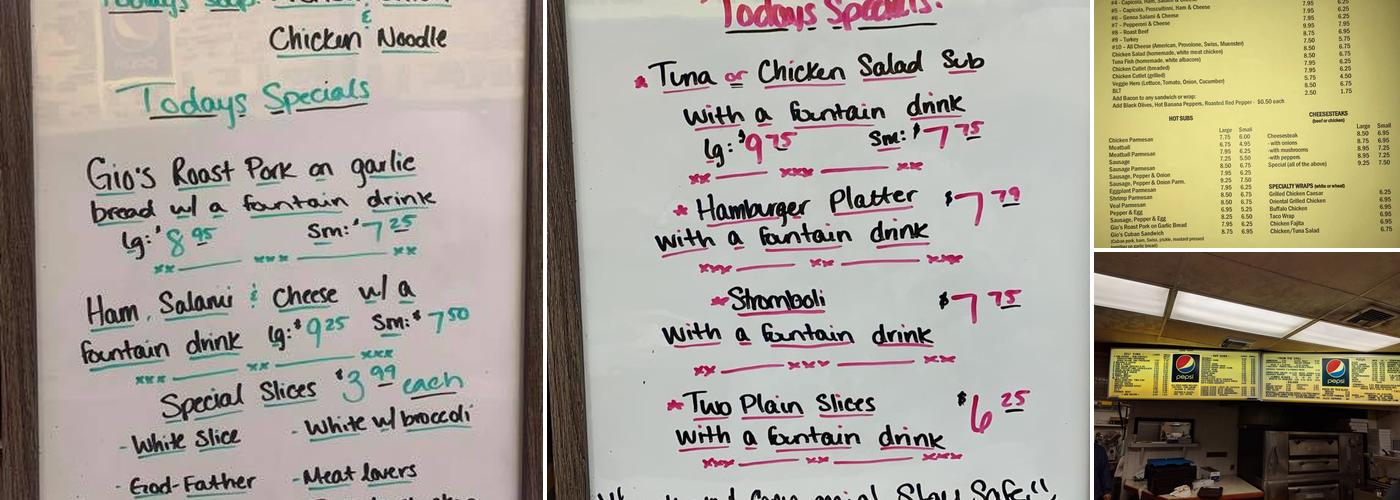 Todays Soup:
&
Chicken Noodle
Todays Specials
Gio's Roast Pork on garlic
bread w/ a fountain drink
Lg: $8.95 Sm: $7.25
xx xxx xx
Ham, Salami & Cheese w/ a
fountain drink Lg: $9.25 Sm: $7.50
xxx xx xxx
Special Slices $3.99 each
- White Slice - White w/ broccoli
- God-Father - Meat lovers
Todays Specials:
* Tuna or Chicken Salad Sub
with a fountain drink
Lg: $9.75 Sm: $7.75
xx xxx xx
* Hamburger Platter $7.79
with a fountain drink
xxx xx xxx
* Stromboli $7.75
with a fountain drink
xx xxx xxx
* Two Plain Slices $6.25
with a fountain drink
xxx xx xxx
Stay Safe!!
#5 - Capicola, Proscuitinni, Ham & Cheese
#6 - Genoa Salami & Cheese
#7 - Pepperoni & Cheese
#8 - Roast Beef
#9 - Turkey
#10 - All Cheese (American, Provolone, Swiss, Muenster)
Chicken Salad (homemade, white meat chicken)
Tuna Fish (homemade, white albacore)
Chicken Cutlet (breaded)
Chicken Cutlet (grilled)
Veggie Hero (Lettuce, Tomato, Onion, Cucumber)
BLT
Add Bacon to any sandwich or wrap:
Add Black Olives, Hot Banana Peppers, Roasted Red Pepper - $0.50 each
7.95 6.25
7.95 6.25
9.95 7.95
8.75 6.95
7.50 5.75
8.50 6.75
8.50 6.75
7.95 6.25
7.95 6.25
5.75 4.50
8.50 6.75
2.50 1.75
HOT SUBS
Large Small
Chicken Parmesan 7.75 6.00
Meatball 6.75 4.95
Meatball Parmesan 7.95 6.25
Sausage 7.25 5.50
Sausage Parmesan 8.50 6.75
Sausage, Pepper & Onion 7.95 6.25
Sausage, Pepper & Onion Parm. 9.25 7.50
Eggplant Parmesan 7.95 6.25
Shrimp Parmesan 8.50 6.75
Veal Parmesan 8.50 6.75
Pepper & Egg 6.95 5.25
Sausage, Pepper & Egg 8.25 6.50
Gio's Roast Pork on Garlic Bread 7.95 6.25
Gio's Cuban Sandwich 8.75 6.95
(Cuban pork, ham, Swiss, pickle, mustard pressed
CHEESESTEAKS
(beef or chicken)
Large Small
Cheesesteak 8.50 6.95
-with onions 8.75 6.95
-with mushrooms 8.95 7.25
-with peppers 8.95 7.25
Special (all of the above) 9.25 7.50
SPECIALTY WRAPS (white or wheat)
Grilled Chicken Caesar 6.25
Oriental Grilled Chicken 6.95
Buffalo Chicken 6.95
Taco Wrap 6.95
Chicken Fajita 6.95
Chicken/Tuna Salad 6.75
pepsi
pepsi